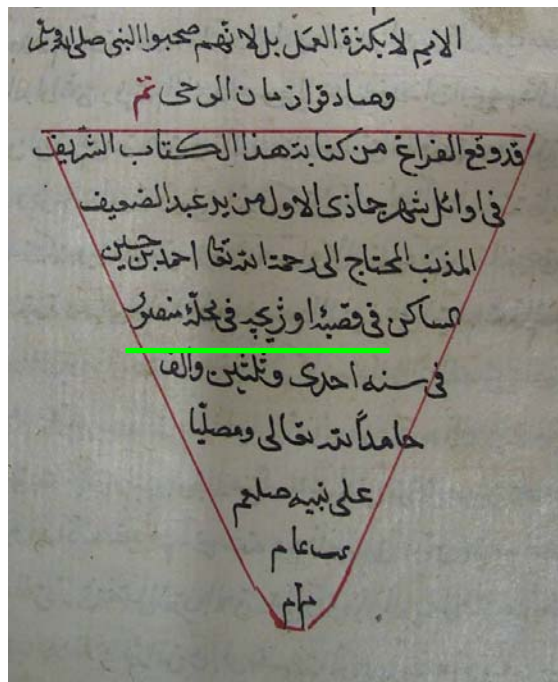 الامم لا بكثرة العمل بل لانهم صحبوا النبي صلى الله
وصادقوا زمان الوحى تم
قد وقع الفراغ من كتابة هذا الكتاب الشريف
فى اوائل شهر جماذى الاول من يد عبد الضعيف
المذنب المحتاج الى رحمة الله تعا احمد بن حسين
الساكن فى قصبۀ اوزيچه فى محلۀ منصور
فى سنه احدى وثلثين والف
حامداً لله تعالى ومصلّيا
على نبيه صلعم
م م